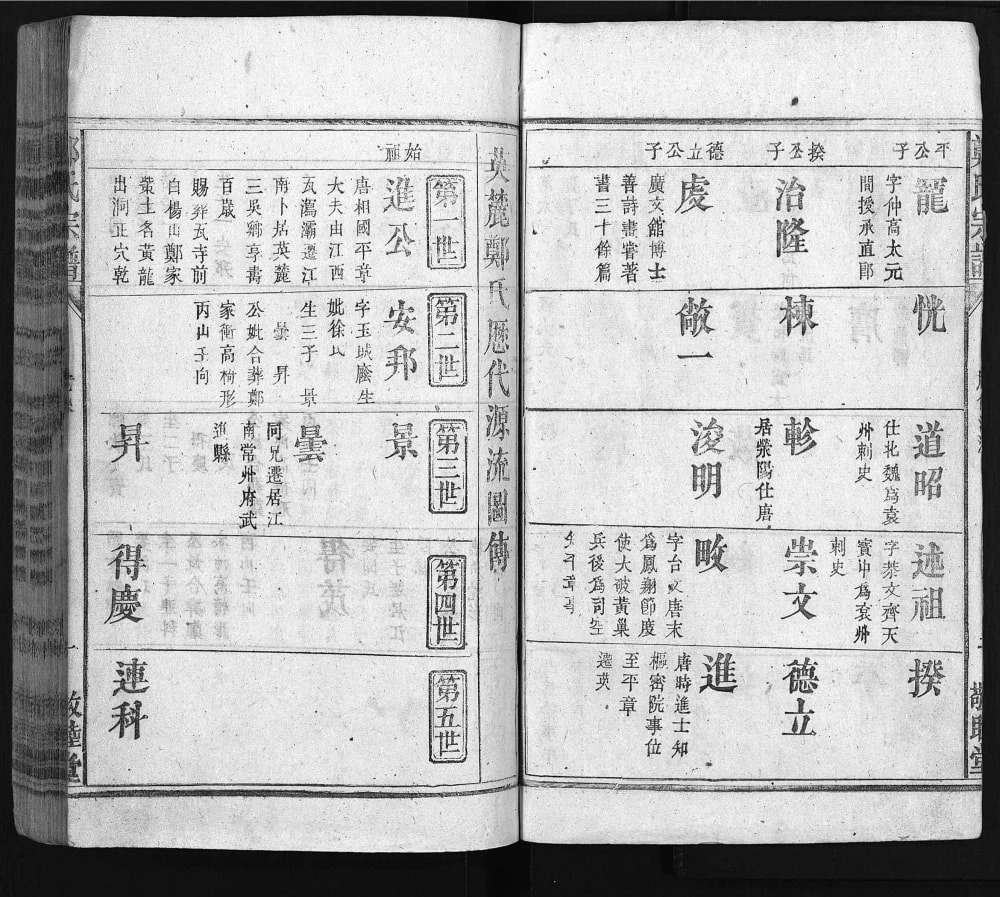 平公子
龍
字仲高太元
間授承直郎
恍
道昭
仕北魏爲袁
州刺史
述祖
字恭文齊天
寳中爲袁州
刺史
揆
揆公子
治隆
棟
軫
居滎陽仕唐
崇文
德立
德立公子
虔
廣文館博士
善詩畫睿著
書三十餘篇
敞一
浚明
畋
字台文唐末
爲鳳翔節度
使大破黃巢
兵後爲司空
進
唐時進士知
樞密院事位
至平章
遷英
英麓鄭氏歷代源流圖傳
第一世
第二世
第三世
第四世
第五世
始祖
進公
唐相國平章
大夫由江西
瓦瀉灞遷江
南卜居英麓
三吳鄉享壽
百歲
賜葬瓦寺前
白楊山鄭家
塋土名黃龍
出洞正穴乾
安邦
字玉城廕生
妣徐氏
生三子 景
曇 昇
公妣合葬鄭
家衝高椅形
丙山壬向
景
曇
同兄遷居江
南常州府武
進縣
昇
得慶
連科
鄭氏宗譜
敬睦堂